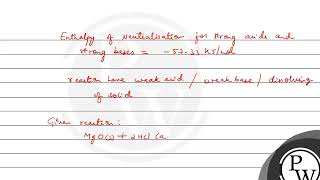 Enthalpy of Neutralisation for strong acids and
strong bases = -57.33 kJ/mol
reaction have weak acid / weak base / dissolving
of solid
Given reaction:
MgO(s) + 2HCl (a
PW